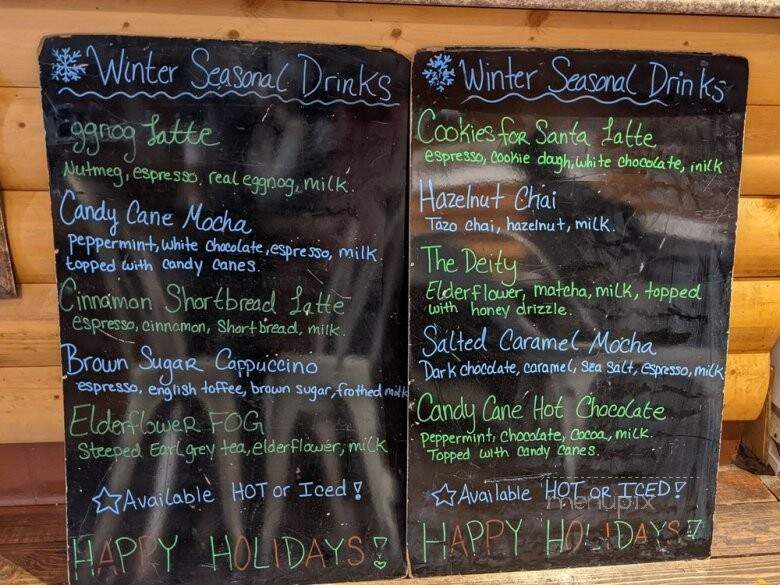 Winter Seasonal Drinks
ggnog Latte
Nutmeg, espresso, real eggnog, milk.
Candy Cane Mocha
peppermint, white chocolate, espresso, milk
topped with candy canes.
Cinnamon Shortbread Latte
espresso, cinnamon, Shortbread, milk.
Brown Sugar Cappuccino
espresso, english toffee, brown sugar, frothed milk
Elderflower FOG
Steeped Earl grey tea, elderflower, milk
☆Available HOT or Iced!
HAPPY HOLIDAYS!
Winter Seasonal Drinks
Cookies for Santa Latte
espresso, cookie dough, white chocolate, milk
Hazelnut Chai
Tazo chai, hazelnut, milk.
The Deity
Elderflower, matcha, milk, topped
with honey drizzle.
Salted Caramel Mocha
Dark chocolate, caramel, sea salt, espresso, milk
Candy Cane Hot Chocolate
peppermint, chocolate, cocoa, milk.
Topped with candy canes.
☆Available HOT OR ICED!
menupix
HAPPY HOLIDAYS!